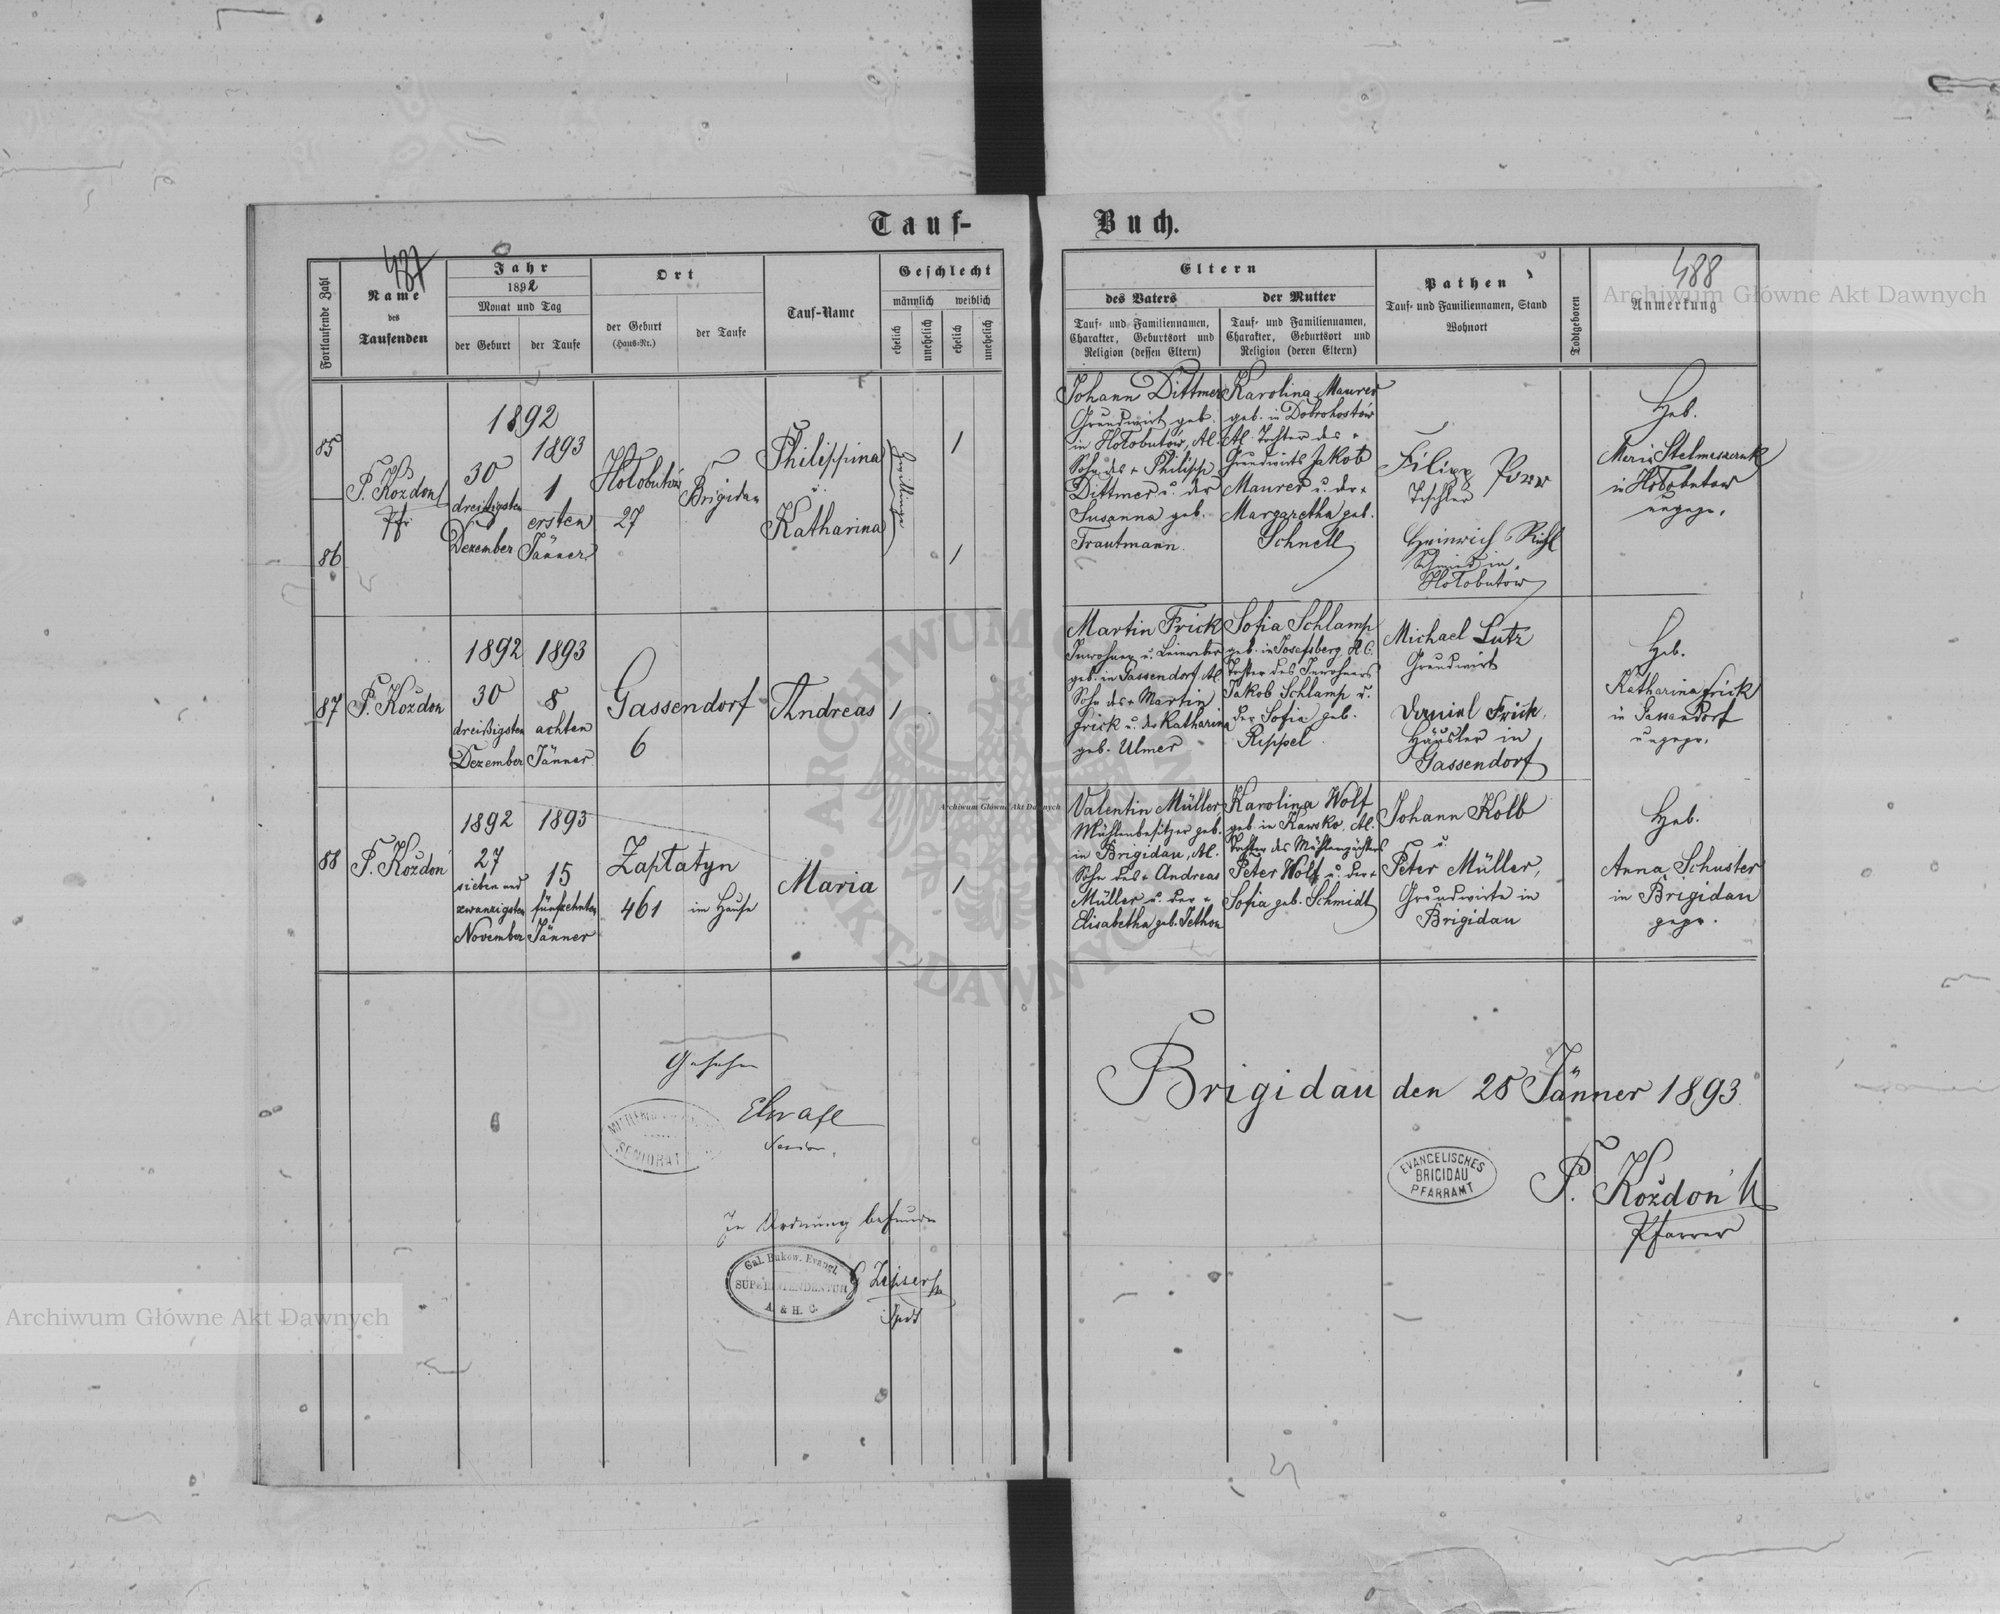 Tauf-
Buch.
487
488
Fortlaufende Zahl
Name
des
Taufenden
Jahr
1892
Monat und Tag
der Geburt
der Taufe
Ort
der Geburt
(Haus-Nr.)
der Taufe
Tauf-Name
Geschlecht
männlich
weiblich
ehelich
unehelich
ehelich
unehelich
Eltern
des Vaters
Tauf- und Familiennamen,
Charakter, Geburtsort und
Religion (dessen Eltern)
der Mutter
Tauf- und Familiennamen,
Charakter, Geburtsort und
Religion (deren Eltern)
Pathen
Tauf- und Familiennamen, Stand
Wohnort
Todtgeboren
Anmerkung
85
86
F. Koždoń
Pfr
1892
30
dreißigsten
Dezember
1893
1
ersten
Jänner
Hołobutów
27
Brigidau
Philippina
u.
Katharina
1
1
Johann Dittmer
Grundwirt geb.
in Hołobutów, Al.
Sohn des + Philipp
Dittmer u. der
Susanna geb.
Trautmann
Karolina Maurer
geb. in Dobrohostów
Al. Tochter des +
Grundwirts Jakob
Maurer u. der +
Margaretha geb.
Schnell
Filipp
Tischler
Heinrich
Schmied in
Hołobutow
Heb.
in Hołobutow
ungepr.
87
F. Koždon
1892
30
dreißigsten
Dezember
1893
8
achten
Jänner
Gassendorf
6
Andreas
1
Martin Frick
Inwohner u. Leineweber
geb. in Gassendorf Al
Sohn des + Martin
Frick u. der Katharina
geb. Ulmer
Sofia Schlamp
geb. in Josefsberg, H. C.
Tochter des Inwohners
Jakob Schlamp u.
der Sofia geb.
Rippel
Michael Lutz
Grundwirt
Daniel Frick,
Häusler in
Gassendorf
Heb.
Katharina Frick
in Gassendorf
ungepr.
88
F. Koždoń
1892
27
sieben und
zwanzigsten
November
1893
15
fünfzehnten
Jänner
Zapłatyn
461
im Hause
Maria
1
Valentin Müller
Mühlenbesitzer geb.
in Brigidau, Al.
Sohn des + Andreas
Müller u. der +
Elisabetha geb. Jethon
Karolina Wolf
geb. in Kawsko, Al.
Tochter des Mühlenpächters
Peter Wolf u. der +
Sofia geb. Schmidt
Johann Kolb
u.
Peter Müller,
Grundwirte in
Brigidau
Heb.
Anna Schuster
in Brigidau
gepr.
Gesehen
Senior.
SENIORAT
In Ordnung befunden
Gal. Bukow. Evangl.
SUPERINTENDENTUR
A. & H. C.
G Zipser
Spdt
Brigidau den 25 Jänner 1893
EVANGELISCHES
BRIGIDAU
PFARRAMT
F. Koždoń
Pfarrer
Archiwum Główne Akt Dawnych
Archiwum Główne Akt Dawnych
Archiwum Główne Akt Dawnych
ARCHIWUM GŁÓWNE AKT DAWNYCH